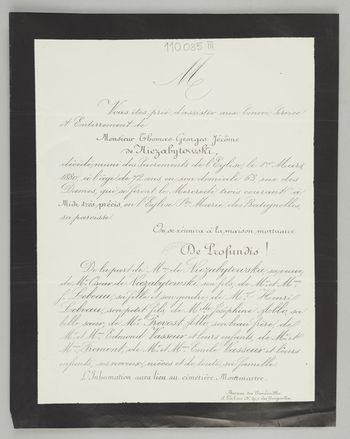 110085 III
M
Vous êtes prié d'assister aux Convoi, Service
et Enterrement de
Monsieur Thomas-Georges-Jérôme
de Niezabytowski,
décédé, muni des Sacrements de l'Eglise, le 1er Mars
1880, à l'âge de 72 ans, en son domicile, 63, rue des
Dames, qui se feront le Mercredi trois courant, à
Midi très précis, en l'Eglise Ste Marie des Batignolles,
sa paroisse.
On se réunira à la maison mortuaire.
De Profundis!
De la part de Mme de Niezabytowska, sa veuve,
de Mr Oscar de Niezabytowski, son fils, de Mr et Mme
J. Labeau, sa fille et son gendre, de Mr Henri
Labeau, son petit fils, de Melle Joséphine Sollo, sa
belle sœur, de Mr Provost Sollo, son beau frère, de
Mr et Mme Edmond Vasseur et leurs enfants, de Mr et
Mme Bremont, de Mr et Mme Emile Vasseur et leurs
enfants, ses neveux, nièces et de toute sa famille.
L'Inhumation aura lieu au cimetière Montmartre.